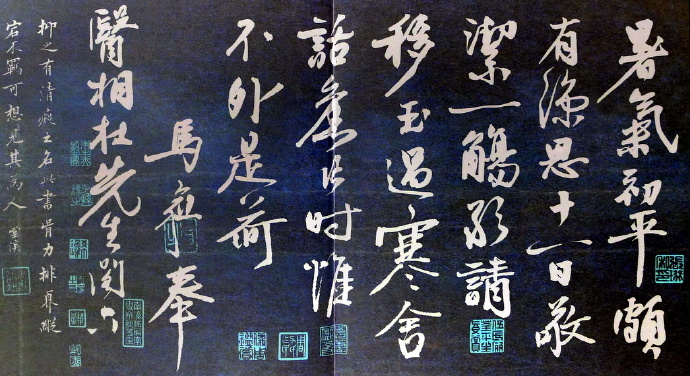 暑氣初平頗
有涼思十一日敬
潔一觴請
移玉過寒舍
話舊片時惟
不外是荷
馬愈奉
醫相杜先生閣下
抑之有清癡之名此書骨力排奡縱
宕不羈可想見其為人